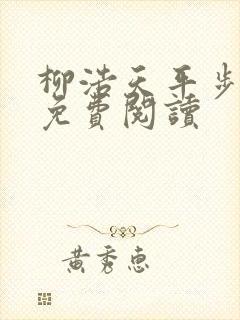 柳浩天平步
免費閱讀
黃秀惠